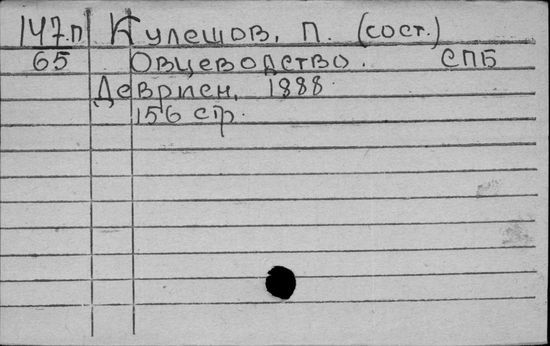 147.П Кулешов, П. (сост.)
65 Овцеводство. СПБ
Девриен, 1888.
156 стр.